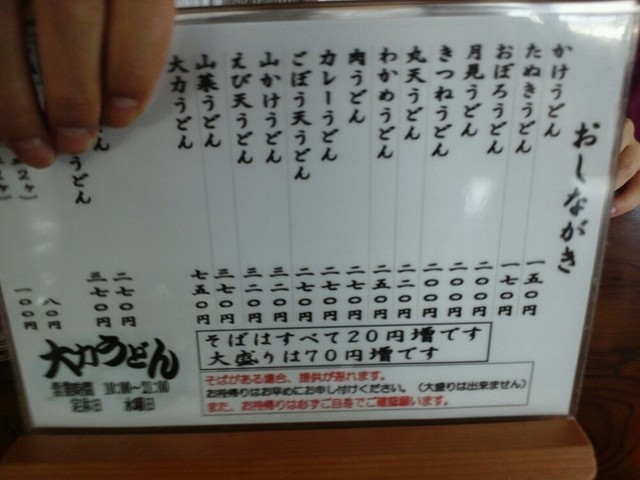 おしながき
かけうどん 一五〇円
たぬきうどん 一七〇円
おぼろうどん 二〇〇円
月見うどん 二〇〇円
きつねうどん 二〇〇円
丸天うどん 二二〇円
わかめうどん 二五〇円
肉うどん 二七〇円
カレーうどん 二七〇円
ごぼう天うどん 二七〇円
山かけうどん 三二〇円
えび天うどん 三二〇円
山菜うどん 三七〇円
大力うどん 七五〇円
二七〇円
うどん 三七〇円
八〇円
２ヶ） 一〇〇円
そばはすべて２０円増です
大盛りは７０円増です
そばがある場合、提供が遅れます。
お持帰りはお早めにお申し付けください。（大盛りは出来ません）
また、お持帰りは必ずご自身でご確認願います。
大力うどん
営業時間 10:00～21:00
定休日 水曜日